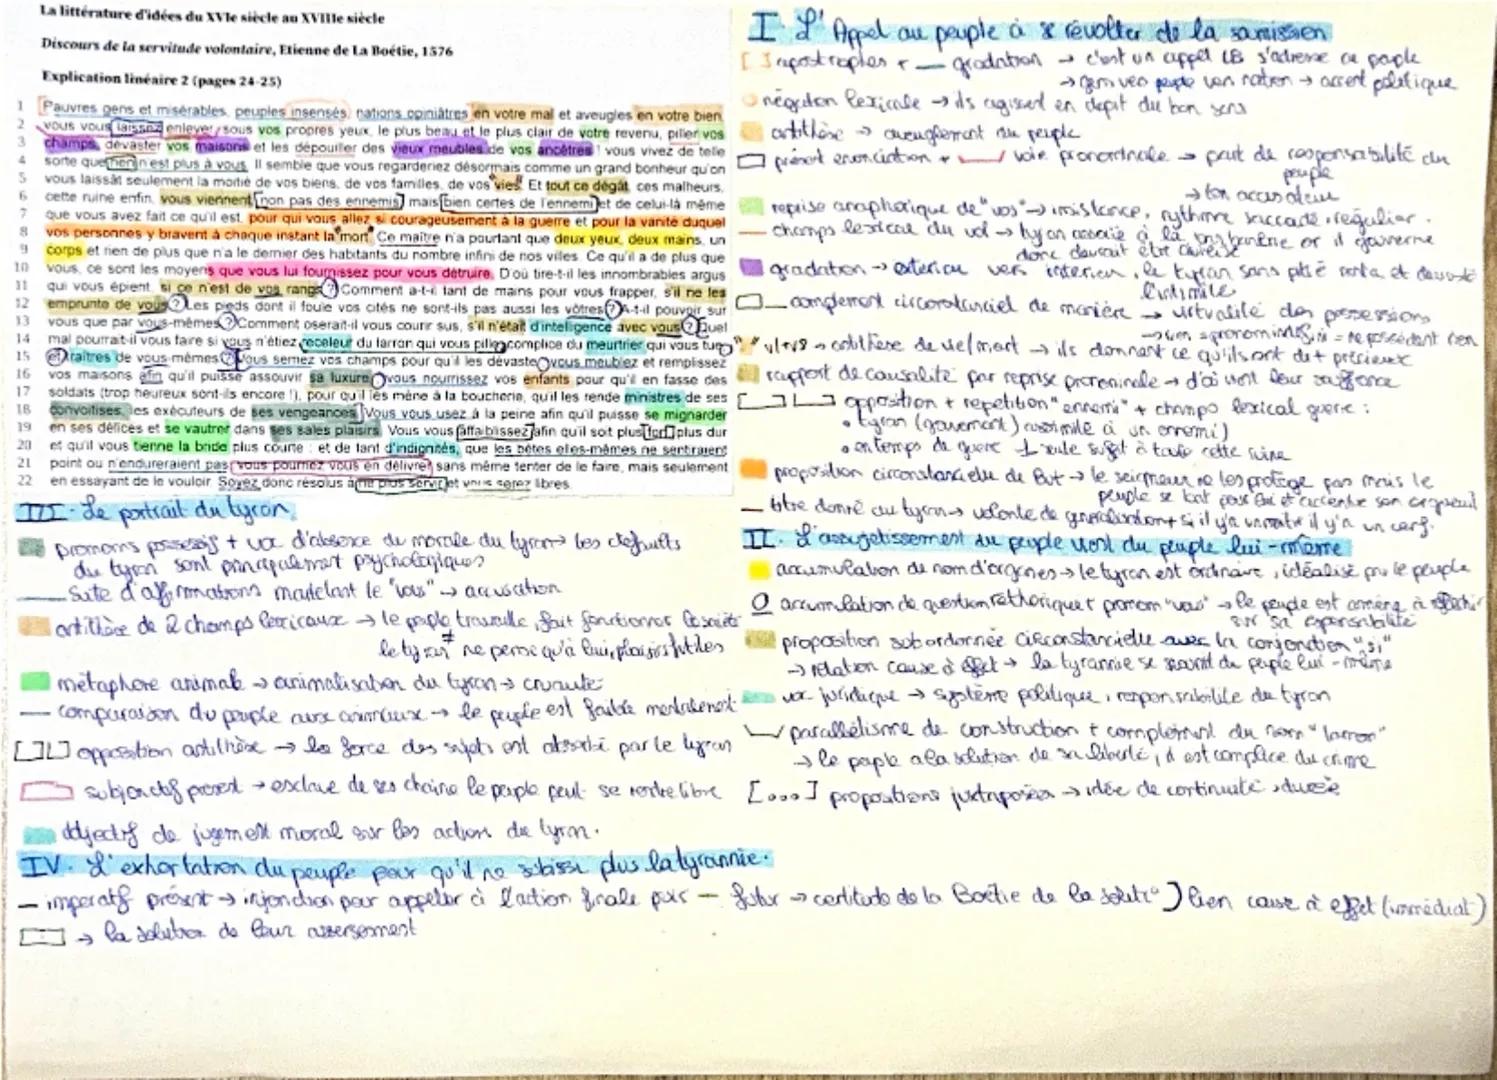 La littérature d'idées du XVIe siècle au XVIIIe siècle
Discours de la servitude volontaire, Etienne de La Boétie, 1576
Explication linéaire 2 (pages 24-25)
1 Pauvres gens et misérables, peuples insensés, nations opiniâtres en votre mal et aveugles en votre bien,
2 vous vous laissez enlever, sous vos propres yeux, le plus beau et le plus clair de votre revenu, piller vos
3 champs, dévaster vos maisons et les dépouiller des vieux meubles de vos ancêtres ! vous vivez de telle
4 sorte que rien n'est plus à vous. Il semble que vous regarderiez désormais comme un grand bonheur qu'on
5 vous laissât seulement la moitié de vos biens, de vos familles, de vos vies. Et tout ce dégât, ces malheurs,
6 cette ruine enfin, vous viennent, non pas des ennemis, mais bien certes de l'ennemi et de celui-là même
7 que vous avez fait ce qu'il est, pour qui vous allez si courageusement à la guerre et pour la vanité duquel
8 vos personnes y bravent à chaque instant la mort. Ce maître n'a pourtant que deux yeux, deux mains, un
9 corps et rien de plus que n'a le dernier des habitants du nombre infini de nos villes. Ce qu'il a de plus que
10 vous, ce sont les moyens que vous lui fournissez pour vous détruire. D'où tire-t-il les innombrables argus
11 qui vous épient, si ce n'est de vos rangs ? Comment a-t-il tant de mains pour vous frapper, s'il ne les
12 emprunte de vous ? Les pieds dont il foule vos cités ne sont-ils pas aussi les vôtres ? A-t-il pouvoir sur
13 vous que par vous-mêmes ? Comment oserait-il vous courir sus, s'il n'était d'intelligence avec vous ? Quel
14 mal pourrait-il vous faire si vous n'étiez receleur du larron qui vous pille, complice du meurtrier qui vous tue,
15 et traîtres de vous-mêmes ? Vous semez vos champs pour qu'il les dévaste, vous meublez et remplissez
16 vos maisons afin qu'il puisse assouvir sa luxure, vous nourrissez vos enfants pour qu'il en fasse des
17 soldats (trop heureux sont-ils encore !), pour qu'il les mène à la boucherie, qu'il les rende ministres de ses
18 convoitises, les exécuteurs de ses vengeances. Vous vous usez à la peine afin qu'il puisse se mignarder
19 en ses délices et se vautrer dans ses sales plaisirs. Vous vous affaiblissez afin qu'il soit plus fort, plus dur
20 et qu'il vous tienne la bride plus courte : et de tant d'indignités, que les bêtes elles-mêmes ne sentiraient
21 point ou n'endureraient pas, vous pourriez vous en délivrer, sans même tenter de le faire, mais seulement
22 en essayant de le vouloir. Soyez donc résolus à ne plus servir et vous serez libres.
I L'Appel au peuple à se révolter de la
apostrophes + gradation → c'est un appel LB s'adresse au peuple
→ accent politique
négation lexicale → ils agissent en depit du bon sens
antithèse → aveuglement du peuple
présent enonciation + voie pronominale → part de responsabilité du peuple
→ ton accusateur
reprise anaphorique de "vos" → insistance, rythme saccadé, régulier.
champs lexical du vol → tyran associé à or il gouverne
donc devrait être
gradation → exterieur vers interieur, le tyran sans pitié
l'intimité
complement circonstanciel de manière → des possessions
antithèse de vie/mort → ils donnent ce qu'ils ont de + précieux
rapport de causalité par reprise pronominale → d'où vient leur souffrance
opposition + repetition "ennemi" + champs lexical guerre :
• tyran (gouvernant) assimilé à un ennemi)
• en temps de guerre 1 seule sujet à toute cette ruine
proposition circonstancielle de But → le seigneur ne les protège pas mais le
peuple se bat pour lui et accentue son orgueuil
titre donné au tyran → volonté de généralisation + si il y'a un maitre il y'a un cerf.
II. L'assujetissement du peuple vient du peuple lui-même
accumulation de nom d'organes → le tyran est ordinaire, idéalisé par le peuple
accumulation de question rethorique + pronom "vous" → le peuple est amené à réflechir
sur sa responsabilité
proposition subordonnée circonstancielle avec la conjonction "si"
→ relation cause à effet → la tyrannie se nourrit du peuple lui-même
voc juridique → système politique, responsabilité du tyran
parallélisme de construction + complément du nom "larron"
→ le peuple a la solution de sa liberté, il est complice du crime
[...] propositions juxtaposées → idée de continuité, durée
III. Le portrait du tyran
pronoms possessifs + voc d'absence de morale du tyran → les défauts
du tyran sont principalement psychologiques
suite d'affirmations martelant le "vous" → accusation
antithèse de 2 champs lexicaux → le peuple travaille, fait fonctionner la société
≠
le tyran ne pense qu'à lui, plaisirs futiles
métaphore animale → animalisation du tyran → cruauté
comparaison du peuple aux animaux → le peuple est faible mentalement
opposition antithèse → la force des sujets est absorbé par le tyran
subjonctif present → esclave de ses chaine le peuple peut se rendre libre
adjectif de jugement moral sur les actions du tyran.
IV. L'exhortation du peuple pour qu'il ne subisse plus la tyrannie.
— imperatif présent → injonction pour appeller à l'action finale puis — futur → certitude de la Boétie de la solut° ) lien cause à effet (immédiat)
→ la solution de leur asservissement